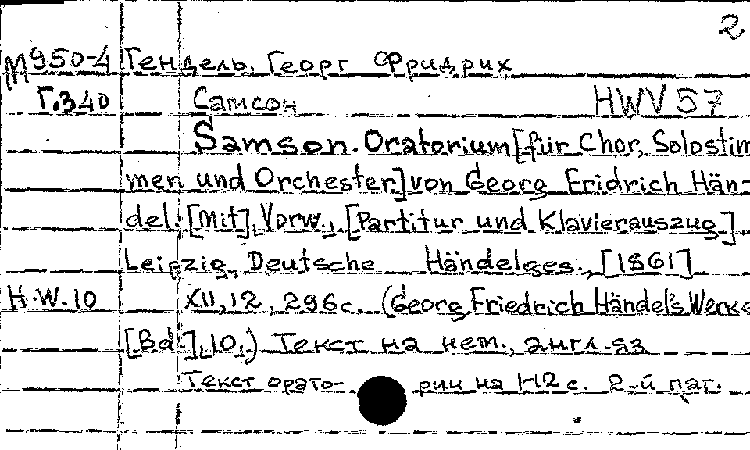 2
М950-4 Гендель, Георг Фридрих
Г.340 Самсон HWV 57
Samson. Oratorium [für Chor, Solostim
men und Orchester] von Georg Fridrich Hän-
del. [Mit] Vorw., [Partitur und Klavierauszug].
Leipzig, Deutsche Händelges., [1861]
H.W.10 XII, 12, 296 с. (Georg Friedrich Händel's Werke
[Bd.], 10.) Текст на нем., англ. яз
Текст орато- рии на 1-12 с. 2-й паг.